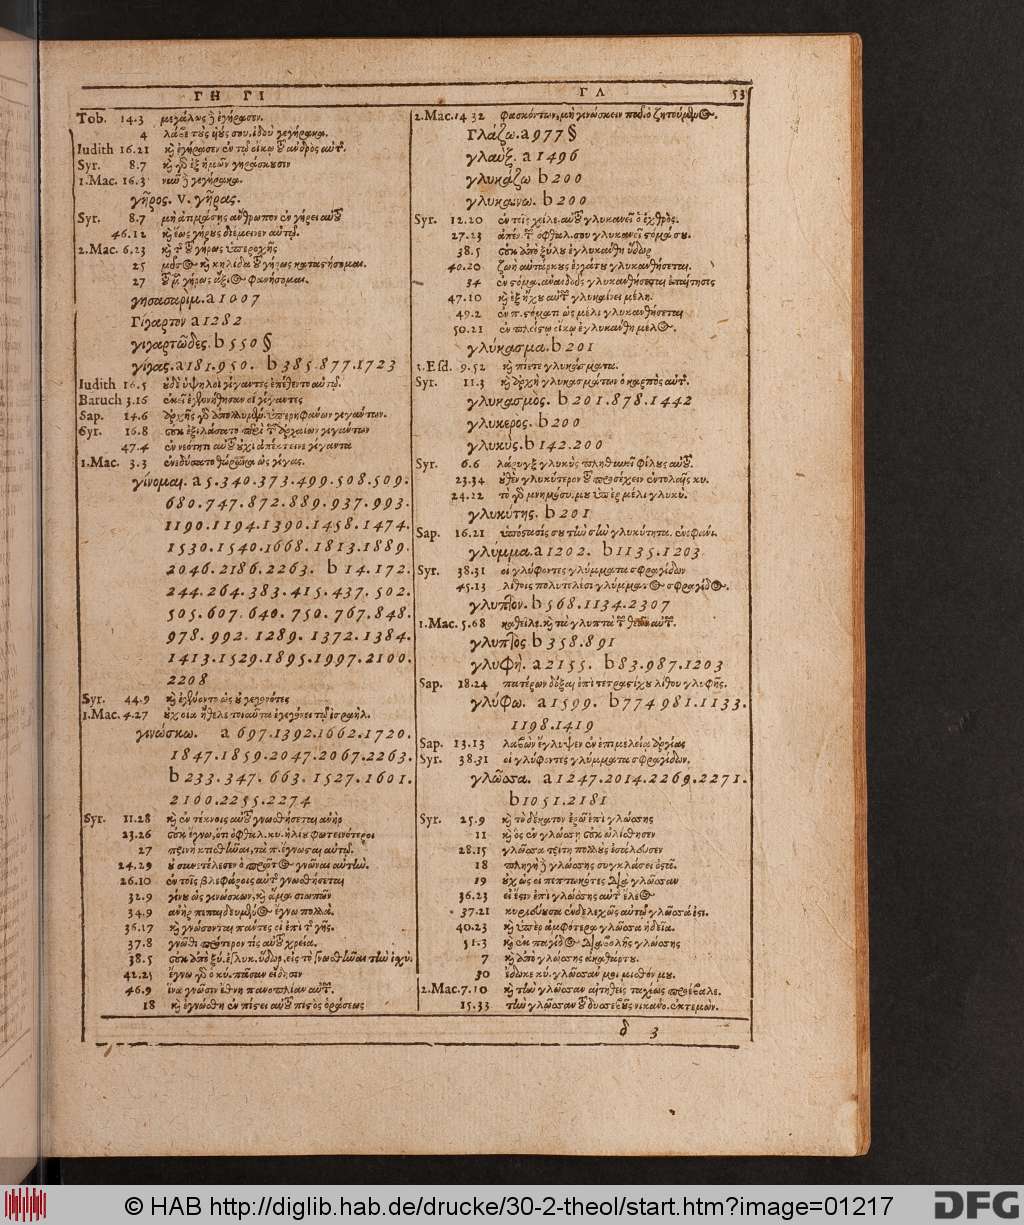 ΓΗ ΓΙ
ΓΛ 53
Tob. 14.3 μεγάλως ἐγήρασεν.
4 λάβε τοὺς ἰδού γεγήρακα.
Iudith 16.21 καὶ ἐγήρασεν ἐν τῷ οἴκῳ τοῦ ἀνδρὸς αὐτῆς.
Syr. 8.7 καὶ γὰρ ἐξ ἡμῶν γηράσκουσιν
1.Mac. 16.3 γεγήρακα.
γῆρος. v. γῆρας.
Syr. 8.7 μὴ ἀτιμάσῃς ἄνθρωπον ἐν γήρει αὐτοῦ
46.12 καὶ ἕως γήρους διέμεινεν αὐτῷ.
2.Mac. 6.23 καὶ τῆς τοῦ γήρως ὑπεροχῆς
25 καὶ κηλῖδα τοῦ γήρως
27 τοῦ γήρως φανήσομαι.
γησασαριμ. a 1007
Γίγαρτον a 1282
γιγαρτῶδες. b 550 §
γίγας. a 181.950. b 385.877.1723
Iudith 16.5 οὐδὲ ὑψηλοὶ γίγαντες ἐπέθεντο αὐτῷ.
Baruch 3.16 ἐκεῖ οἱ γίγαντες
Sap. 14.6 ἀρχῆς γὰρ ὑπερηφάνων γιγάντων.
Syr. 16.8 οὐκ ἐξιλάσατο περὶ τῶν ἀρχαίων γιγάντων
47.4 ἐν νεότητι αὐτοῦ οὐχὶ ἀπέκτεινε γίγαντα
1.Mac. 3.3 ἐνεδύσατο θώρακα ὡς γίγας.
γίνομαι. a 5.340.373.499.508.509.
680.747.872.889.937.993.
1190.1194.1390.1458.1474.
1530.1540.1668.1813.1889.
2046.2186.2263. b 14.172.
244.264.383.415.437.502.
505.607.640.750.767.848.
978.992.1289.1372.1384.
1413.1529.1895.1997.2100.
2208
Syr. 44.9 καὶ ἐγένοντο ὡς οὐ γεγονότες
1.Mac. 4.27 οὐχ οἷα ἤθελε τοιαῦτα ἐγεγόνει τῷ ἰσραὴλ.
γινώσκω. a 697.1392.1662.1720.
1847.1859.2047.2067.2263.
b 233.347.663.1527.1601.
2100.2255.2274
Syr. 11.28 καὶ ἐν τέκνοις αὐτοῦ γνωσθήσεται ἀνὴρ
23.26 οὐκ ἔγνω, ὅτι ὀφθαλ. κυ. ἡλίου φωτεινότεροι
27 πρινὴ κτισθῆναι, τὰ π. ἔγνωσαι αὐτῷ.
24.29 οὐ συνετέλεσεν ὁ πρῶτος γνῶναι αὐτήν.
26.10 ἐν τοῖς βλεφάροις αὐτῆς γνωσθήσεται
32.9 γίνου ὡς γινώσκων, καὶ ἅμα σιωπῶν
34.9 ἀνὴρ πεπαιδευμένος ἔγνω πολλά.
36.17 καὶ γνώσονται πάντες οἱ ἐπὶ τῆς γῆς.
37.8 γνῶθι πρότερον τίς αὐτοῦ χρεία.
38.5
42.25 ἔγνω γὰρ ὁ κύ. πᾶσαν εἴδησιν
46.9 ἵνα γνῶσιν ἔθνη πανοπλίαν αὐτῶν.
18 καὶ ἐγνώσθη ἐν πίστει αὐτοῦ πιστὸς ὁράσεως
2.Mac. 14.32 φασκόντων, μὴ γινώσκειν ποῦ
Γλάζω. a 977 §
γλαύξ. a 1496
γλυκάζω b 200
γλυκαίνω. b 200
Syr. 12.20 ἐν τοῖς χείλε. αὐτοῦ γλυκανεῖ ὁ ἐχθρὸς.
27.23 ἀπέν. τῶν ὀφθαλ. σου γλυκανεῖ στόμα σου.
38.5 οὐκ ἀπὸ ξύλου ἐγλυκάνθη ὕδωρ
40.20 ζωὴ αὐτάρκους ἐργάτου γλυκανθήσεται.
34 ἐν στόμα. ἀναιδοῦς γλυκανθήσεται ἐπαίτησις
47.10 καὶ ἐξ ἤχου αὐτῶν γλυκαίνει μέλη.
49.2 ἐν π. στόματι ὡς μέλι γλυκανθήσεται
50.21 ἐν πλείστῳ οἴκῳ ἐγλυκάνθη μέλος.
γλύκασμα. b 201
1.Esd. 9.52 καὶ πίετε γλυκάσματα.
Syr. 11.3 καὶ ἀρχὴ γλυκασμάτων ὁ καρπὸς αὐτῆς.
γλυκασμός. b 201.878.1442
γλυκερος. b 200
γλυκὺς. b 142.200
Syr. 6.6 λάρυγξ γλυκὺς πληθυνεῖ φίλους αὐτοῦ.
23.34 οὐθὲν γλυκύτερον τοῦ προσέχειν ἐντολαῖς κυ.
24.22 τὸ γὰρ μνημόσυ. μου ὑπὲρ μέλι γλυκύ.
γλυκύτης. b 201
Sap. 16.21 ὑπόστασίς σου τὴν σὴν γλυκύτητα. ἐνεφάνι.
γλύμμα. a 1202. b 1135.1203
Syr. 38.31 οἱ γλύφοντες γλύμματα σφραγίδων
45.13 λίθοις πολυτελέσι γλύμματος σφραγίδος.
γλυπτόν. b 568.1134.2307
1.Mac. 5.68 καθεῖλε. καὶ τὰ γλυπτὰ τῶν θεῶν αὐτῶν.
γλυπτός b 358.891
γλυφή. a 2155. b 83.987.1203
Sap. 18.24 πατέρων δόξαι ἐπὶ τετραστίχου λίθου γλυφῆς.
γλύφω. a 1599. b 774 981.1133.
1198.1419
Sap. 13.13 λαβὼν ἔγλυψεν ἐν ἐπιμελείᾳ ἀργίας
Syr. 38.31 οἱ γλύφοντες γλύμματα σφραγίδων.
γλῶσσα. a 1247.2014.2269.2271.
b 1051.2181
Syr. 25.9 καὶ τὸ δέκατον ἐρῶ ἐπὶ γλώσσης
11 καὶ ὃς ἐν γλώσσῃ οὐκ ὠλίσθησεν
28.15 γλῶσσα τρίτη πολλοὺς ἐσάλευσεν
18 πληγὴ δὲ γλώσσης συγκλάσει ὀστᾶ.
19 οὐχ ὡς οἱ πεπτωκότες διὰ γλῶσσαν
36.23 εἰ ἔστιν ἐπὶ γλώσσης αὐτῆς ἔλεος
37.21 κυριεύουσα ἐνδελεχῶς αὐτῶν γλῶσσά ἐστι.
40.23 καὶ ὑπὲρ ἀμφότερα γλῶσσα ἡδεῖα.
51.3 καὶ ἐκ παγίδος διαβολῆς γλώσσης
7 καὶ ἀπὸ γλώσσης ἀκαθάρτου.
30 ἔδωκε κύ. γλῶσσάν μοι μισθόν μου.
2.Mac. 7.10 καὶ τὴν γλῶσσαν αἰτηθεὶς ταχέως προέβαλε.
15.33 τὴν γλῶσσαν τοῦ δυσσεβοῦς νικάνο. ἐκτεμών.
d 3
© HAB http://diglib.hab.de/drucke/30-2-theol/start.htm?image=01217
DFG